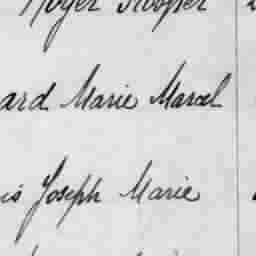 Roger
ard Marie Marcel
is Joseph Marie